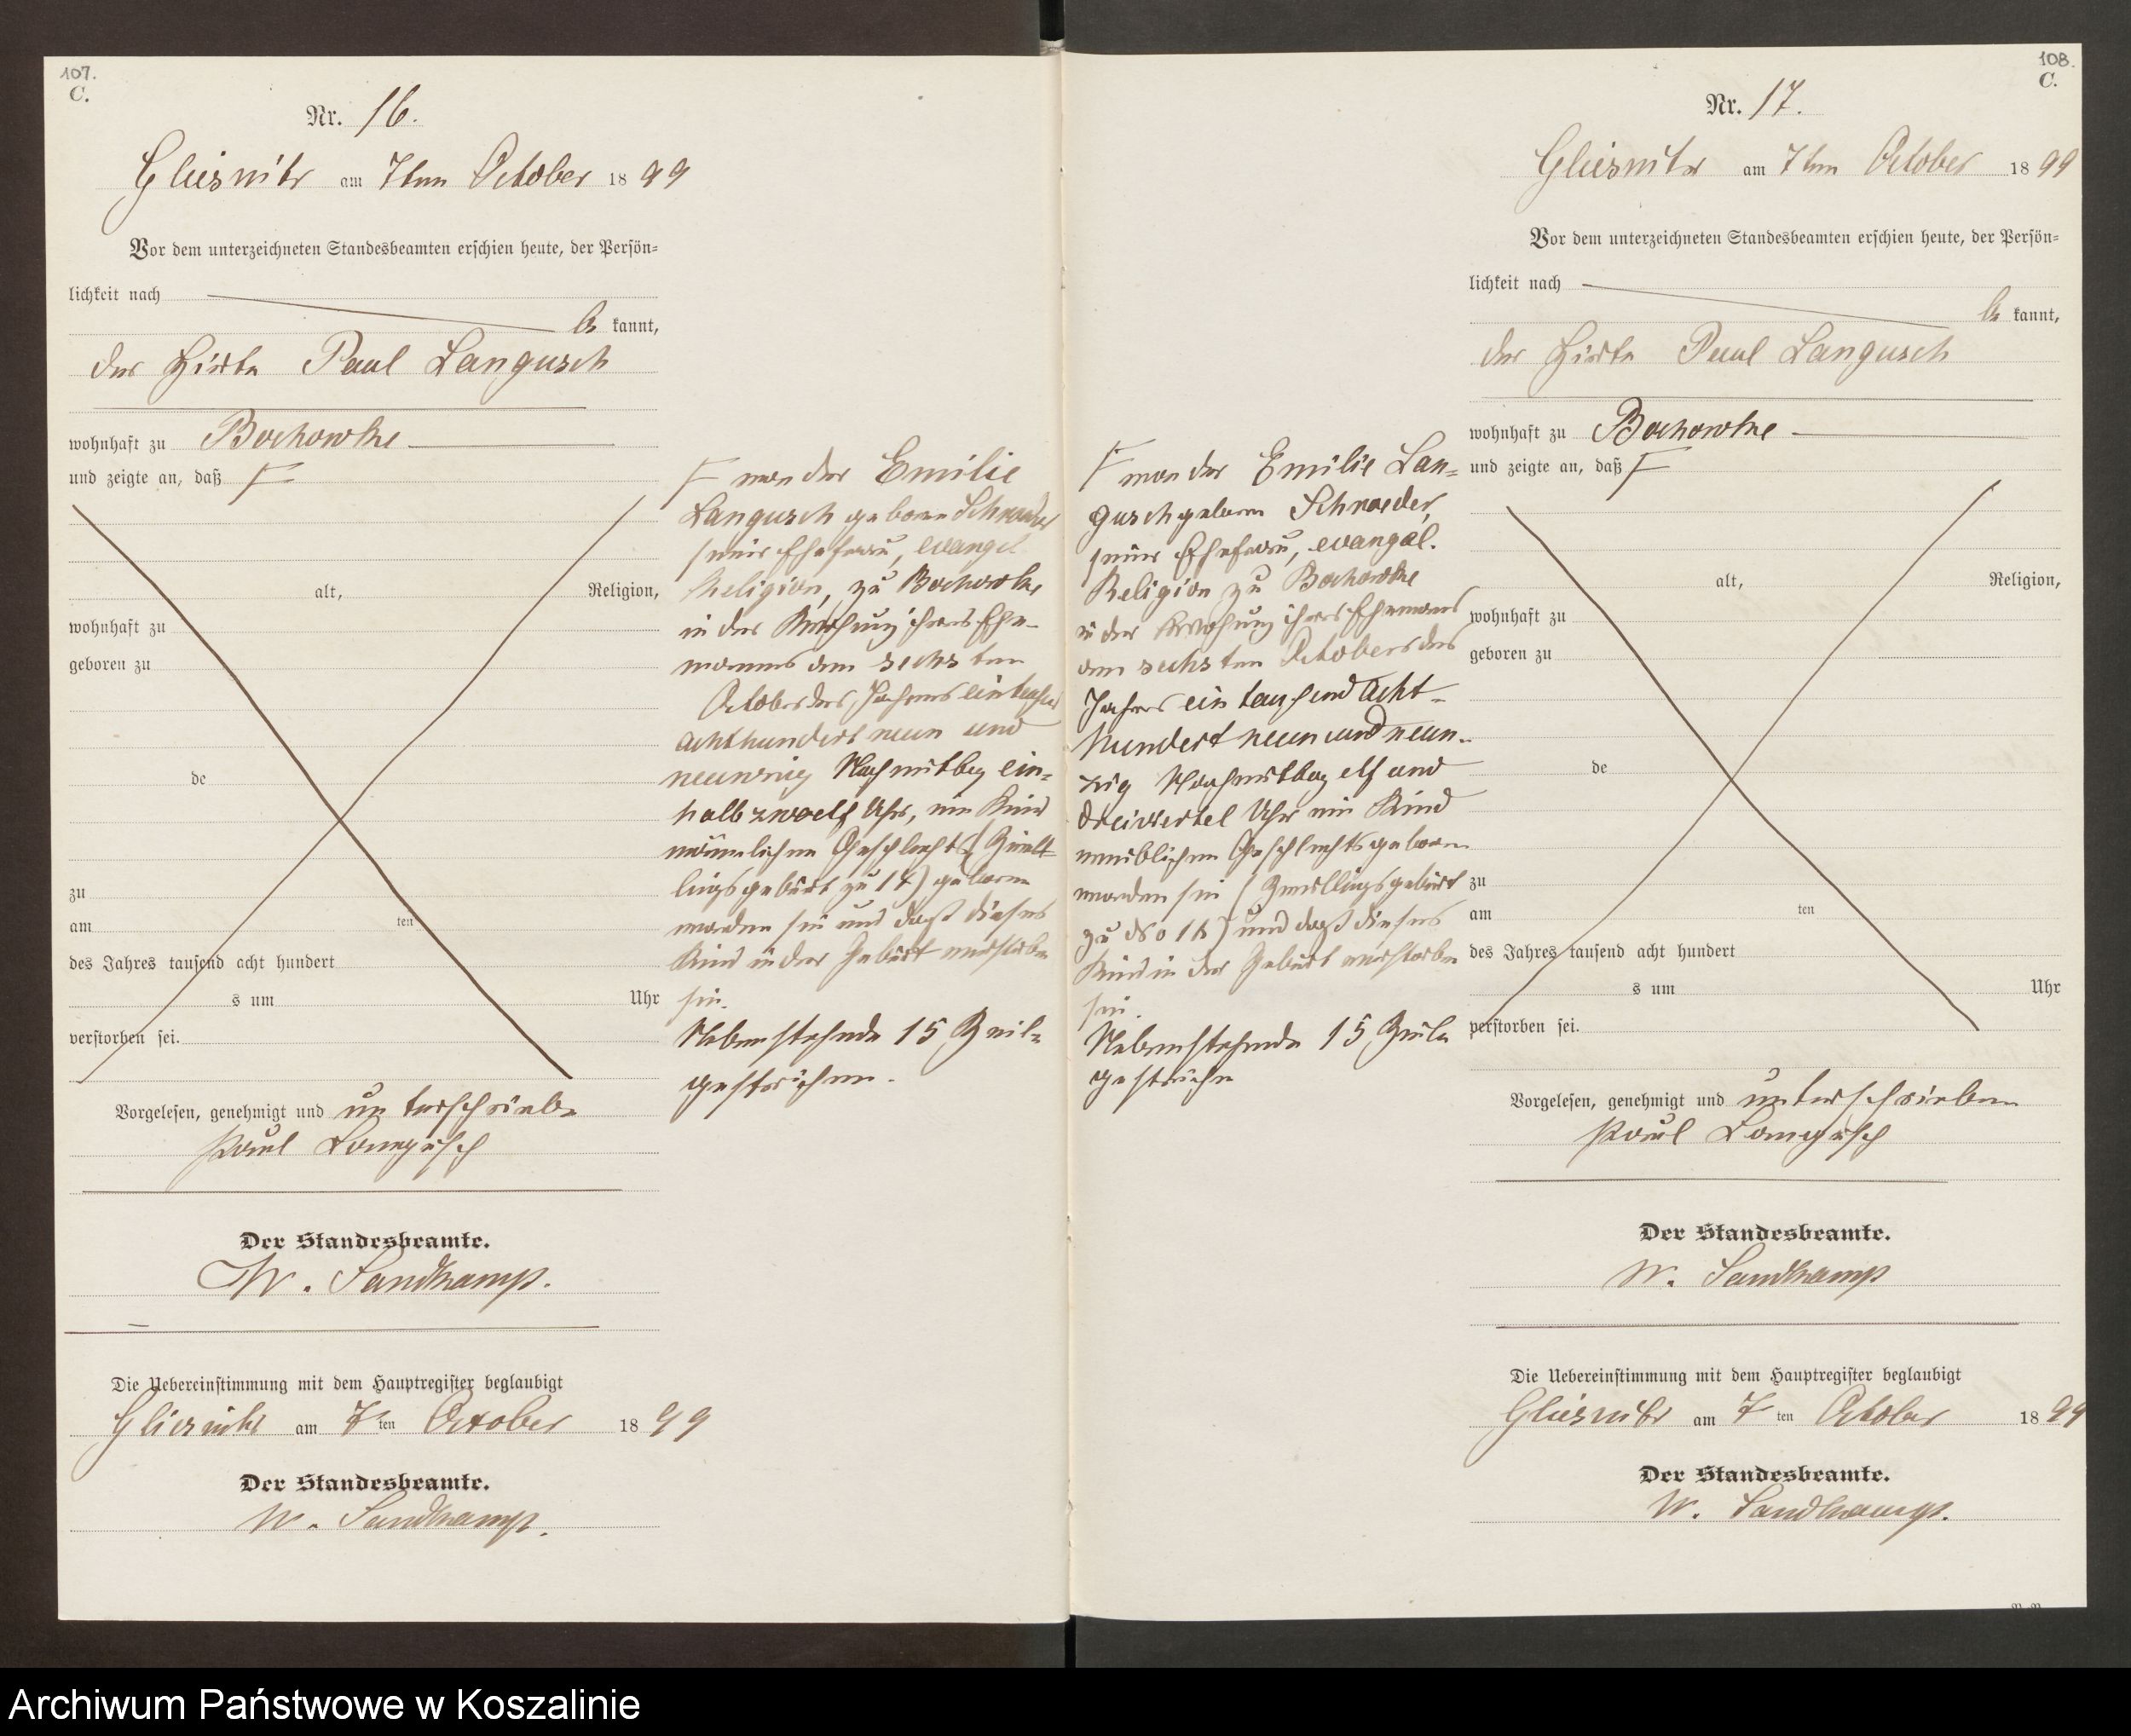 107.
C.
Nr. 16.
Gliesnitz am 7ten October 1899
Vor dem unterzeichneten Standesbeamten erschien heute, der Persön-
lichkeit nach
be kannt,
der Hirte Paul Langusch
wohnhaft zu Bochowke
und zeigte an, daß
alt, Religion,
wohnhaft zu
geboren zu
de
zu
am ten
des Jahres tausend acht hundert
s um Uhr
verstorben sei.
von der Emilie
Langusch geborne Schroeder
seiner Ehefrau, evangel
Religion, zu Bochowke
in der Wohnung ihres Ehe-
mannes am sechsten
October des Jahres eintausend
achthundert neun und
neunzig Nachmittag ein-
halb zwoelf Uhr, ein Kind
männlichen Geschlechts (Zwill-
lingsgeburt zu 17) geboren
worden sei und daß dieses
Kind in der Geburt verstorben
sei.
Nebenstehende 15 Zeil-
gestrichen.
Vorgelesen, genehmigt und unterschrieben
Paul Langusch
Der Standesbeamte.
W. Sandkamp.
Die Uebereinstimmung mit dem Hauptregister beglaubigt
Gliesnitz am 7ten October 1899
Der Standesbeamte.
W. Sandkamp.
108.
C.
Nr. 17.
Gliesnitz am 7ten October 1899
Vor dem unterzeichneten Standesbeamten erschien heute, der Persön-
lichkeit nach
be kannt,
der Hirte Paul Langusch
wohnhaft zu Bochowke
und zeigte an, daß
von der Emilie Lan-
gusch geboren Schroeder,
seiner Ehefrau, evangel.
Religion zu Bochowke
in der Wohnung ihres Ehemanns
am sechsten Octobers des
Jahres ein tausend acht-
hundert neun und neun-
zig Nachmittag elf und
dreiviertel Uhr ein Kind
weiblichen Geschlechts geboren
worden sei (Zwillingsgeburt
zu No 16) und daß dieses
Kind in der Geburt verstorben
sei.
Nebenstehende 15 Zeile
gestrichen
alt, Religion,
wohnhaft zu
geboren zu
de
zu
am ten
des Jahres tausend acht hundert
s um Uhr
verstorben sei.
Vorgelesen, genehmigt und unterschrieben
Paul Langusch
Der Standesbeamte.
W. Sandkamp
Die Uebereinstimmung mit dem Hauptregister beglaubigt
Gliesnitz am 7 ten October 1899
Der Standesbeamte.
W. Sandkamp.
Archiwum Państwowe w Koszalinie